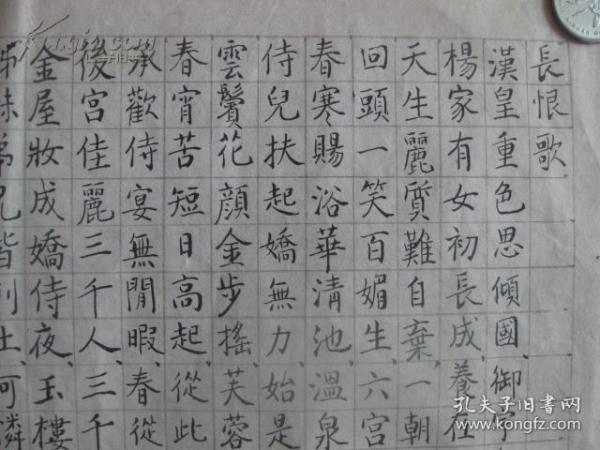 長恨歌
漢皇重色思傾國、御宇
楊家有女初長成、養在
天生麗質難自棄、一朝
回頭一笑百媚生、六宮
春寒賜浴華清池、溫泉
侍兒扶起嬌無力、始是
雲鬢花顏金步搖、芙蓉
春宵苦短日高起、從此
承歡侍宴無閒暇、春從
後宮佳麗三千人、三千
金屋妝成嬌侍夜、玉樓
姊妹弟兄皆列土、可憐
孔夫子旧书网
www.kongfz.com